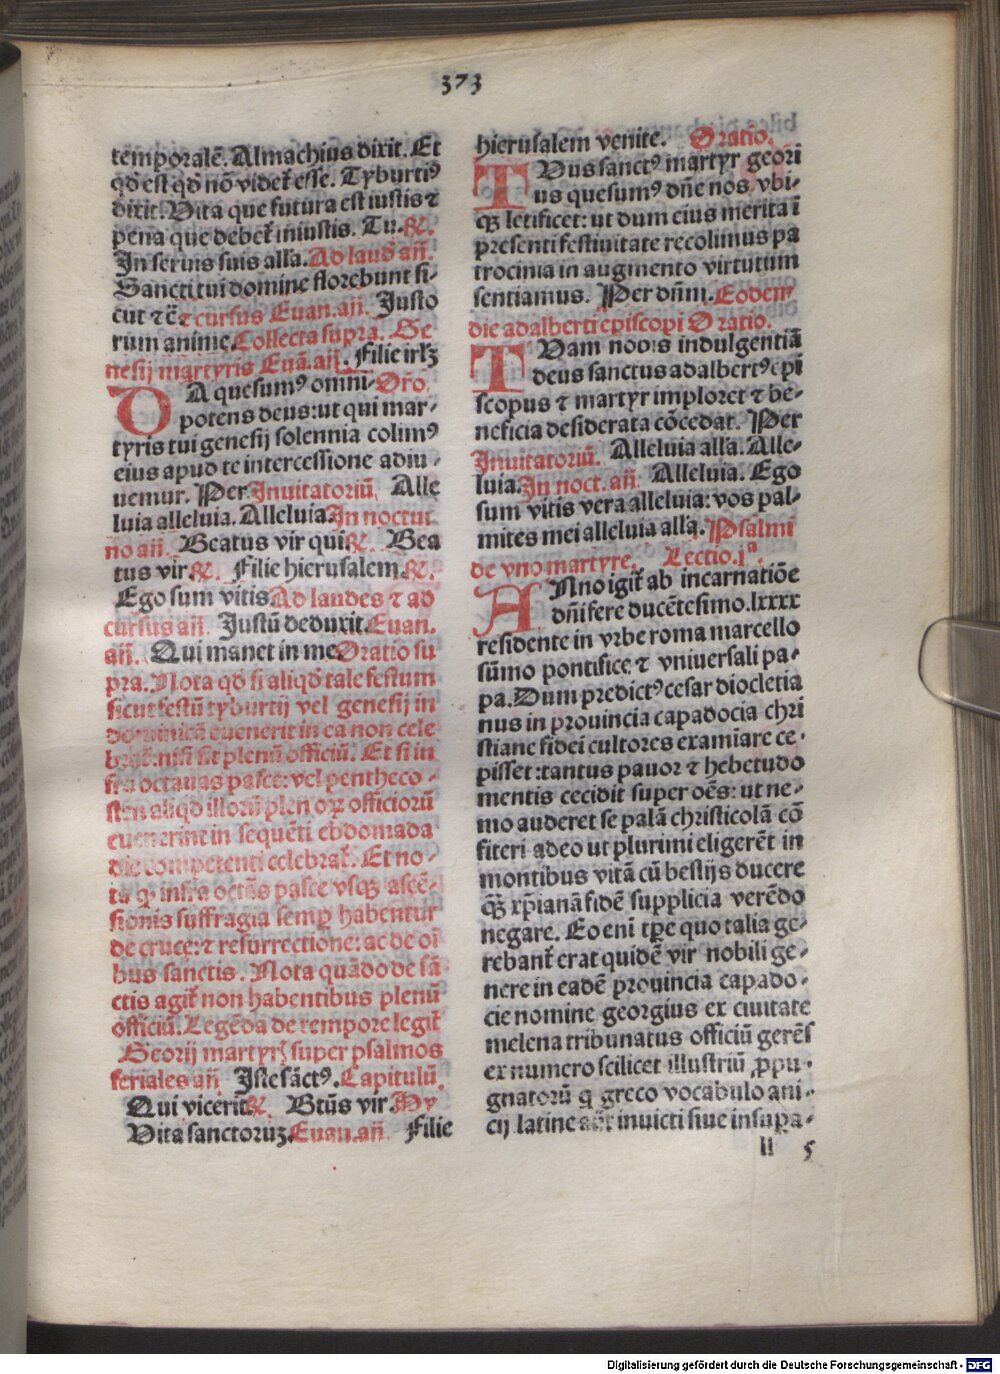 373
temporalē. Almachius dixit. Et
qd̄ est qd̄ nō videt̄ esse. Tyburtiꝰ
dixit. Vita que futura est iustis ⁊
pena que debet̄ iniustis. Tu. ℟.
In seruis suis alla. Ad laud̄ an̄.
Sancti tui domine florebunt si-
cut ⁊ c̄ ⁊ cursus Euan. an̄. Justo
rum anime. Collecta supra. Ge
nesij martyris Euā. an̄. Filie irlꝫ
DA quesumꝰ omni- Oro.
potens deus: ut qui mar-
tyris tui genesij solennia colimꝰ
eius apud te intercessione adiu-
uemur. Per. Inuitatoriū. Alle
luia alleluia. Alleluia. In noctur
no an̄. Beatus vir qui. ℟. Bea
tus vir. ℟. Filie hierusalem. ℟.
Ego sum vitis Ad laudes ⁊ ad
cursus an̄. Justū deduxit. Euan.
an̄. Qui manet in me Oratio su
pra. Nota qd̄ si aliqd̄ tale festum
sicut festū tyburtij vel genesij in
dominica euenerit in ea non cele
brat̄: nisi sit plenū officiū. Et si in
fra octauas pasce: vel pentheco-
sten aliqd̄ illorū plenorꝝ officiorū
euenerint in sequēti ebdomada
die competenti celebrat̄. Et no-
ta ꝙ infra octās pasce vsqꝫ ascē-
sionis suffragia semꝑ habentur
de cruce: ⁊ resurrectione: ac de oi
bus sanctis. Nota quādo de sā-
ctis agit̄ non habentibus plenū
officiū. Legēda de tempore legit̄
Georij martyrꝭ super psalmos
feriales an̄ Iste sāctꝰ. Capitulū.
Qui vicerit ℟. Btūs vir. Hy
Vita sanctorūꝫ. Euan. an̄. Filie
hierusalem venite. Oratio.
TVus sanctꝰ martyr geori
us quesumꝰ dn̄e nos vbi-
qꝫ letificet: ut dum eius merita ī
presenti festiuitate recolimus pa
trocinia in augmento virtutum
sentiamus. Per dn̄m. Eodem
die adalberti episcopi Oratio.
TVam nobis indulgentiā
deus sanctus adalbertꝰ epī
scopus ⁊ martyr imploret ⁊ be-
neficia desiderata cōcedat. Per
Inuitatoriū. Alleluia alla. Alle-
luia. In noct. an̄. Alleluia. Ego
sum vitis vera alleluia: vos pal-
mites mei alleluia alla. Psalmi
de vno martyre. Lectio. jª.
ANno igit̄ ab incarnatiōe
dn̄i fere ducētesimo. lxxxx
residente in vrbe roma marcello
sūmo pontifice ⁊ vniuersali pa-
pa. Dum predictꝰ cesar diocletia
nus in prouincia capadocia chri
stiane fidei cultores examīare ce-
pisset: tantus pauor ⁊ hebetudo
mentis cecidit super oēs: ut ne-
mo auderet se palā christicolā cō
fiteri adeo ut plurimi eligerēt in
montibus vitā cū bestijs ducere
qꝫ̄ xp̄ianā fidē supplicia verēdo
negare. Eo enī tp̄e quo talia ge-
rebant̄ erat quidē vir nobili ge-
nere in eadē prouincia capado-
cie nomine georgius ex ciuitate
melena tribunatus officiū gerēs
ex numero scilicet illustriū ꝓpu-
gnatorū q̄ greco vocabulo ani-
cij latine invicti siue insupa-
ll 5
Digitalisierung gefördert durch die Deutsche Forschungsgemeinschaft - DFG